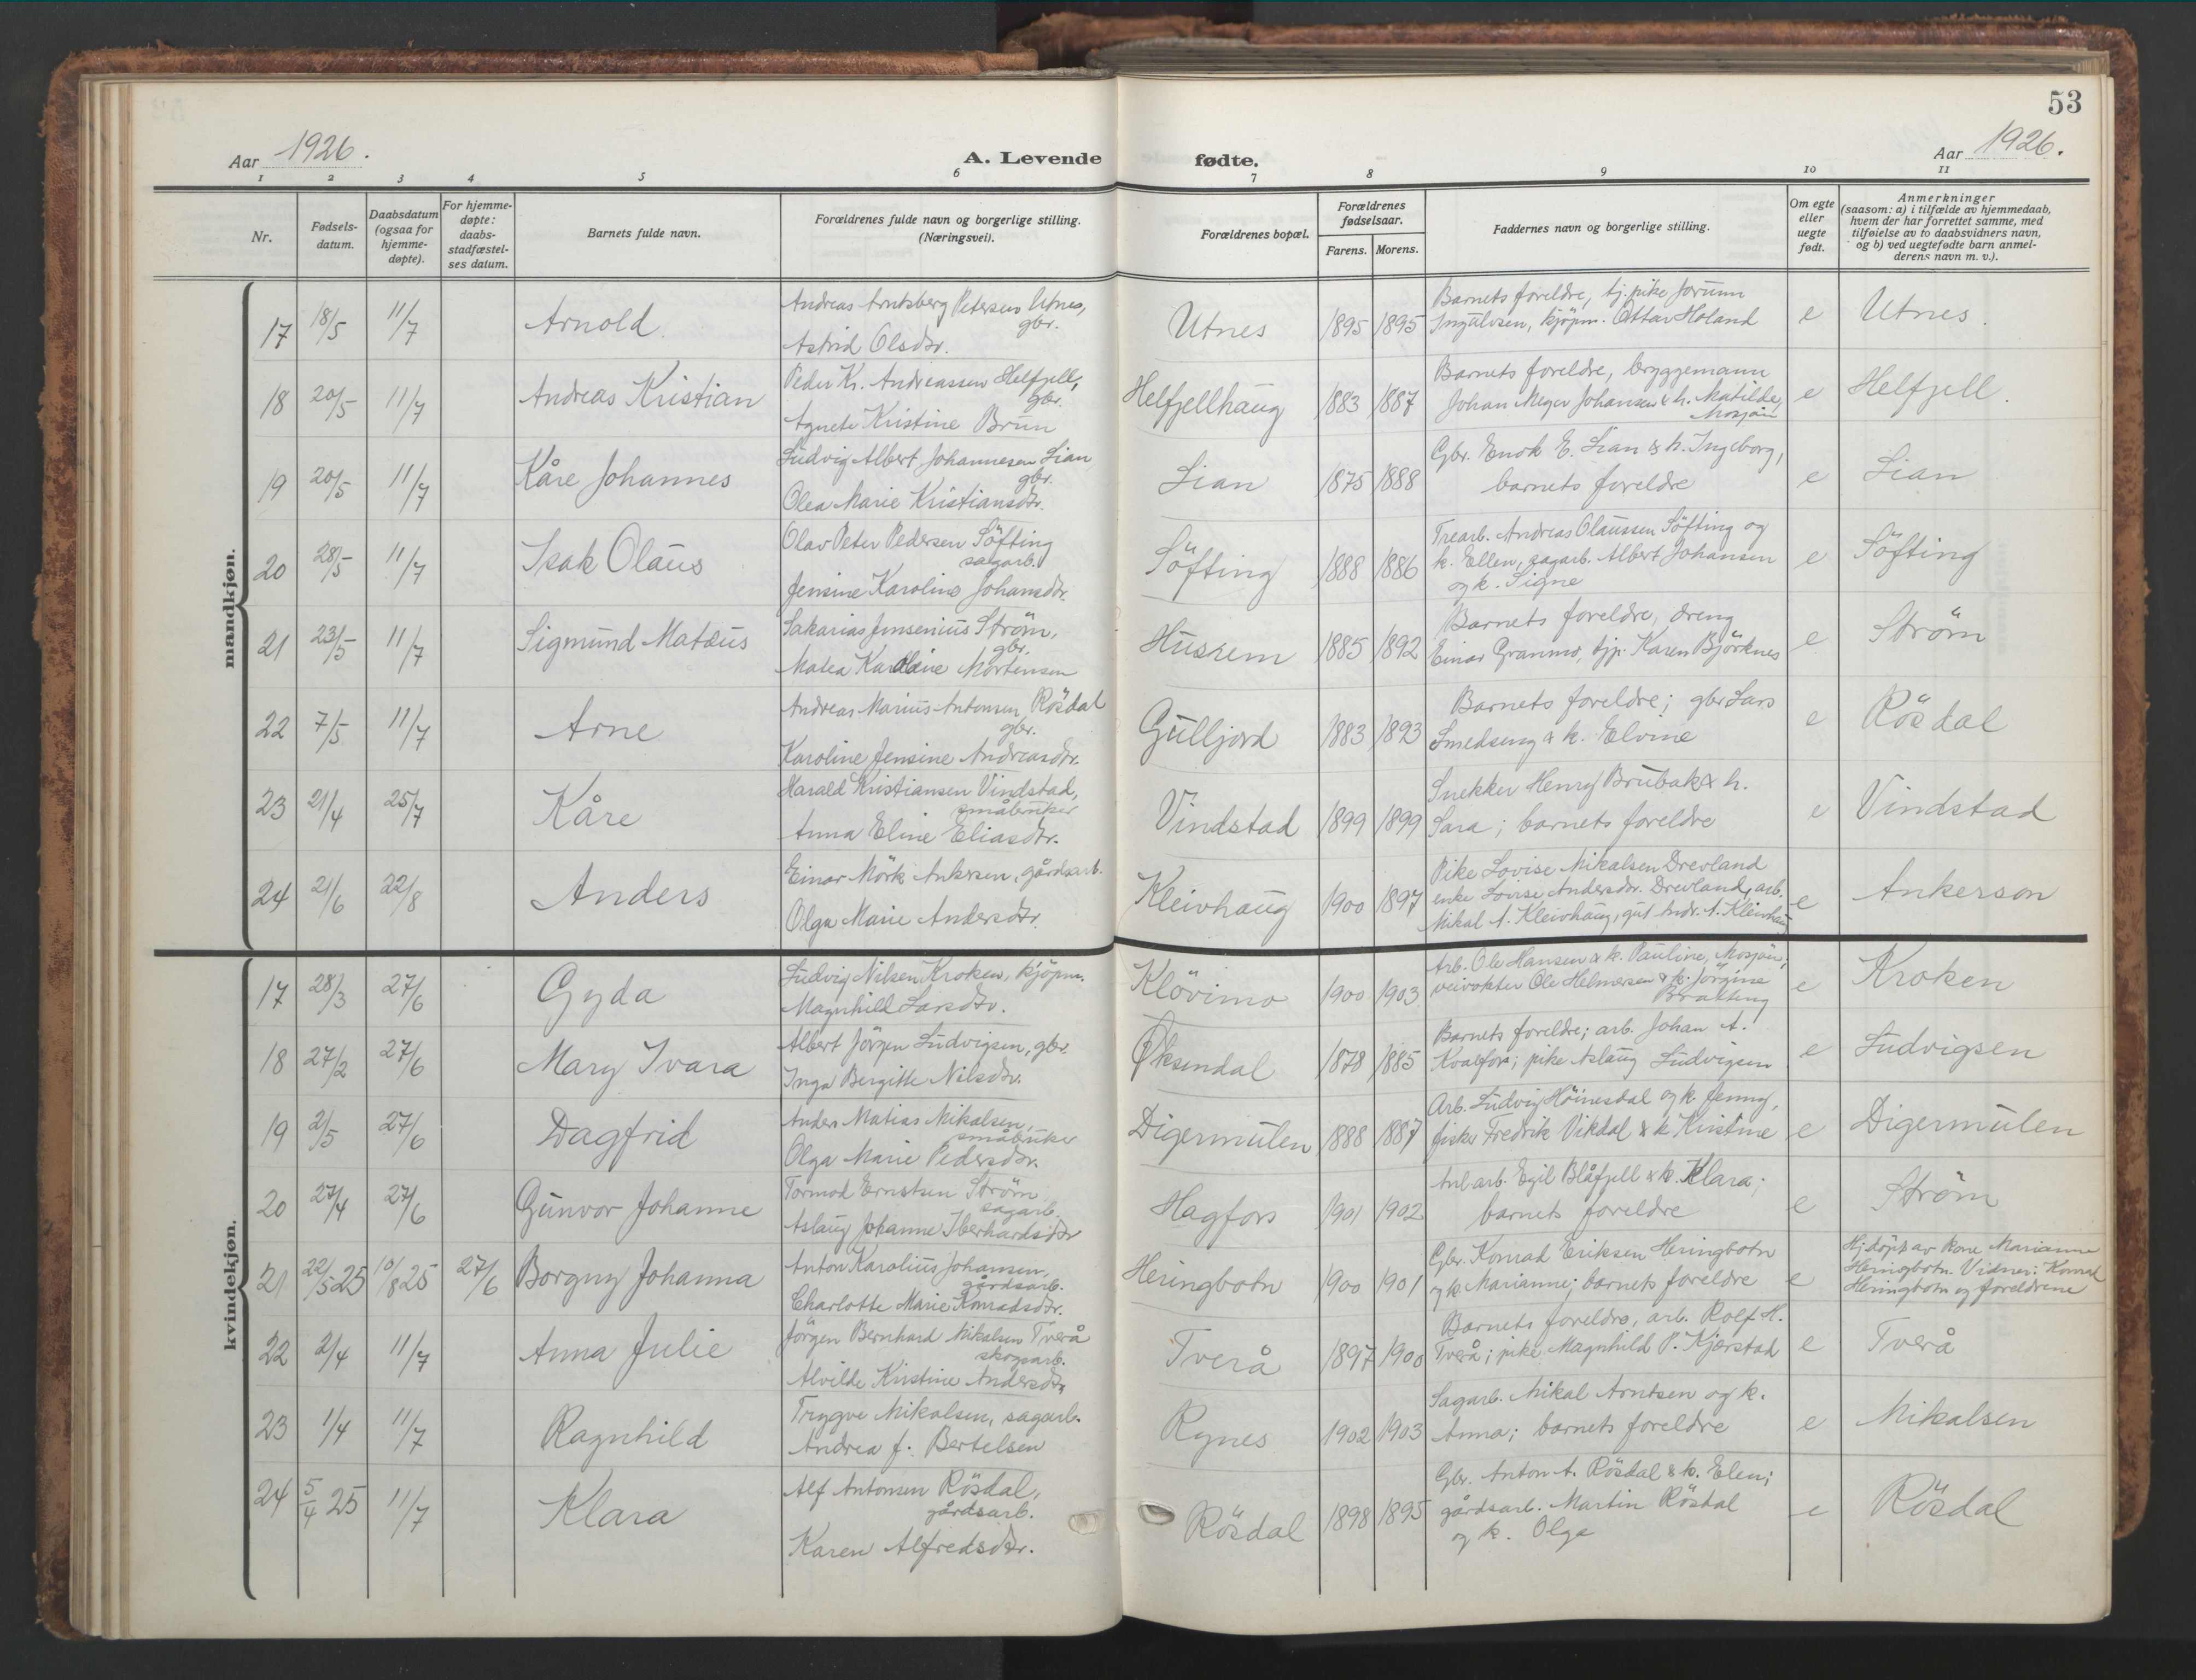 53
Aar 1926.
A. Levende
fødte.
Aar 1926.
1 2 3 4 5 6 7 8 9 10 11
Nr.
Fødsels-
datum.
Daabsdatum
(ogsaa for
hjemme-
døpte).
For hjemme-
døpte:
daabs-
stadfæstel-
ses datum.
Barnets fulde navn.
Forældrenes fulde navn og borgerlige stilling.
(Næringsvei).
Forældrenes bopæl.
Forældrenes
fødselsaar.
Farens. Morens.
Faddernes navn og borgerlige stilling.
Om egte
eller
uegte
født.
Anmerkninger
(saasom: a) i tilfælde av hjemmedaab,
hvem der har forrettet samme, med
tilføielse av to daabsvidners navn,
og b) ved uegtefødte barn anmel-
derens navn m. v.).
mandkjøn.
17 18/5 11/7 Arnold
Andreas Arntsberg Petersen Utnes,
gbr.
Astrid Olsdtr.
Utnes 1895 1895
Barnets foreldre, tj. pike Jorunn
Ingulvsen, kjöpm. Ottar Holand
e Utnes.
18 20/5 11/7 Andreas Kristian
Peder Kr. Andreassen Helfjell,
gbr.
Agnete Kristine Brun
Helfjellhaug 1883 1887
Barnets foreldre, bryggemann
Johan Meyer Johansen & h. Matilde,
Mosjöen
e Helfjell.
19 20/5 11/7 Kåre Johannes
Ludvig Albert Johannesen Lian
gbr.
Olea Marie Kristiansdtr.
Lian 1875 1888
Gbr. Enok E. Lian & h. Ingeborg,
barnets foreldre
e Lian
20 28/5 11/7 Isak Olaus
Olav Peter Pedersen Söfting
sagarb.
Jensine Karoline Johansdtr.
Söfting 1888 1886
Trearb. Andreas Olaussen Söfting og
k. Ellen, sagarb. Albert Johansen
og k. Signe
e Söfting
21 23/5 11/7 Sigmund Matæus
Sakarias Jensenius Ström,
gbr.
Matea Karoline Mortensen
Husrem 1885 1892
Barnets foreldre, dreng
Einar Granmo, tjp. Karen Björknes
e Ström
22 7/5 11/7 Arne
Andreas Marius Antonsen Rösdal
gbr.
Karoline Jensine Andreasdtr.
Gulljord 1883 1893
Barnets foreldre; gbr Lars
Smedseng & k. Elvine
e Rösdal
23 21/4 25/7 Kåre
Harald Kristiansen Vindstad,
småbruker
Anna Eline Eliasdtr.
Vindstad 1899 1899
Snekker Henry Brubak & h.
Sara; barnets foreldre
e Vindstad
24 21/6 22/8 Anders
Einar Mörk Ankersen, gårdsarb.
Olga Marie Andersdtr.
Kleivhaug 1900 1897
Pike Lovise Mikalsen Drevland
enke Lovise Andersdtr. Drevland, arb.
Mikal A. Kleivhaug, gut Andr. A. Kleivhaug
e Ankerson
kvindekjøn.
17 28/3 27/6 Gyda
Ludvig Nilsen Kroken, kjöpm.
Magnhild Larsdtr.
Klövimo 1900 1903
Arb. Ole Hansen & k. Pauline, Mosjöen;
veivokter Ole Helmersen & k. Jörgine
e Kroken
18 27/2 27/6 Mary Ivara
Albert Jörgen Ludvigsen, gbr.
Inga Bergitte Nilsdtr.
Øksendal 1878 1885
Barnets foreldre; arb. Johan A.
Kvalfors; pike Aslaug Ludvigsen
e Ludvigsen
19 2/5 27/6 Dagfrid
Anders Matias Mikalsen,
småbruker
Olga Marie Pedersdtr.
Digermulen 1888 1887
Arb. Ludvig Höinesdal og k. Jenny,
fisker Fredrik Vikdal & k. Kristine
e Digermulen
20 27/4 27/6 Gunvor Johanne
Tormod Ernstsen Ström,
sagarb.
Aslaug Johanne Iberhardsdtr
Hagfors 1901 1902
Anl.arb. Egil Blåfjell & k. Klara;
barnets foreldre
e Ström
21 22/5 25 10/8 25 27/6 Borgny Johanna
Anton Karolius Johansen,
gårdsarb.
Charlotte Marie Konradsdtr.
Heringbotn 1900 1901
Gbr. Konrad Eriksen Heringbotn
og k. Marianne; barnets foreldre
e Hj.döpt av kone Marianne
Heringbotn. Vidner: Konrad
Heringbotn og foreldrene
22 2/4 11/7 Anna Julie
Jörgen Bernhard Mikalsen Tverå
skogsarb.
Alvilde Kristine Andersdtr
Tverå 1897 1900
Barnets foreldre, arb. Rolf H.
Tverå; pike Magnhild P. Kjærstad
e Tverå
23 1/4 11/7 Ragnhild
Trygve Mikalsen, sagarb.
Andrea J. Bertelsen
Rynes 1902 1903
Sagarb. Mikal Arntsen og k.
Anna; barnets foreldre
e Mikalsen
24 5/4 25 11/7 Klara
Alf Antonsen Rösdal,
gårdsarb.
Karen Alfredsdtr.
Rösdal 1898 1895
Gbr. Anton A. Rösdal & k. Elen;
gårdsarb. Martin Rösdal
og k. Olga
e Rösdal